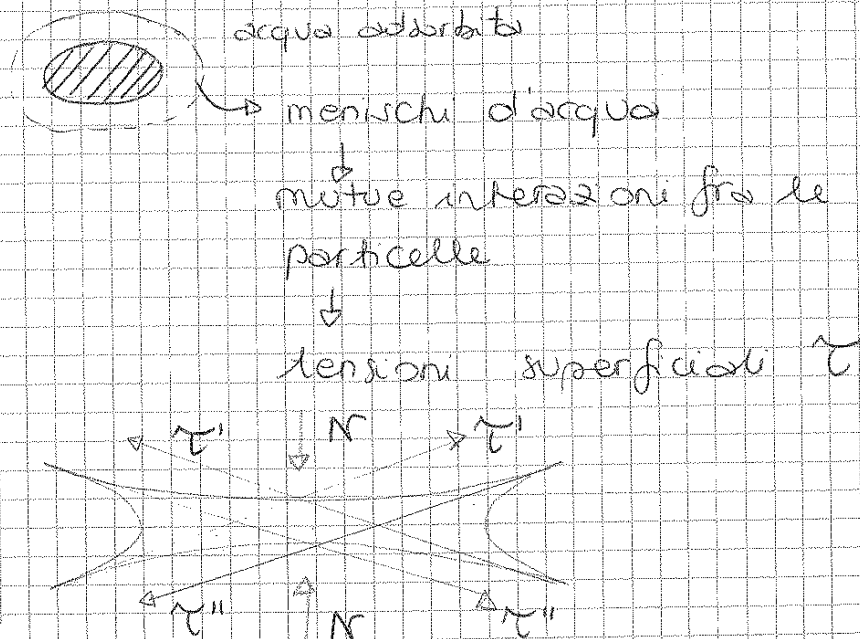 acqua adsorbita
menischi d'acqua
mutue interazioni fra le
particelle
tensioni superficiali τ
τ' N τ'
τ" N τ"